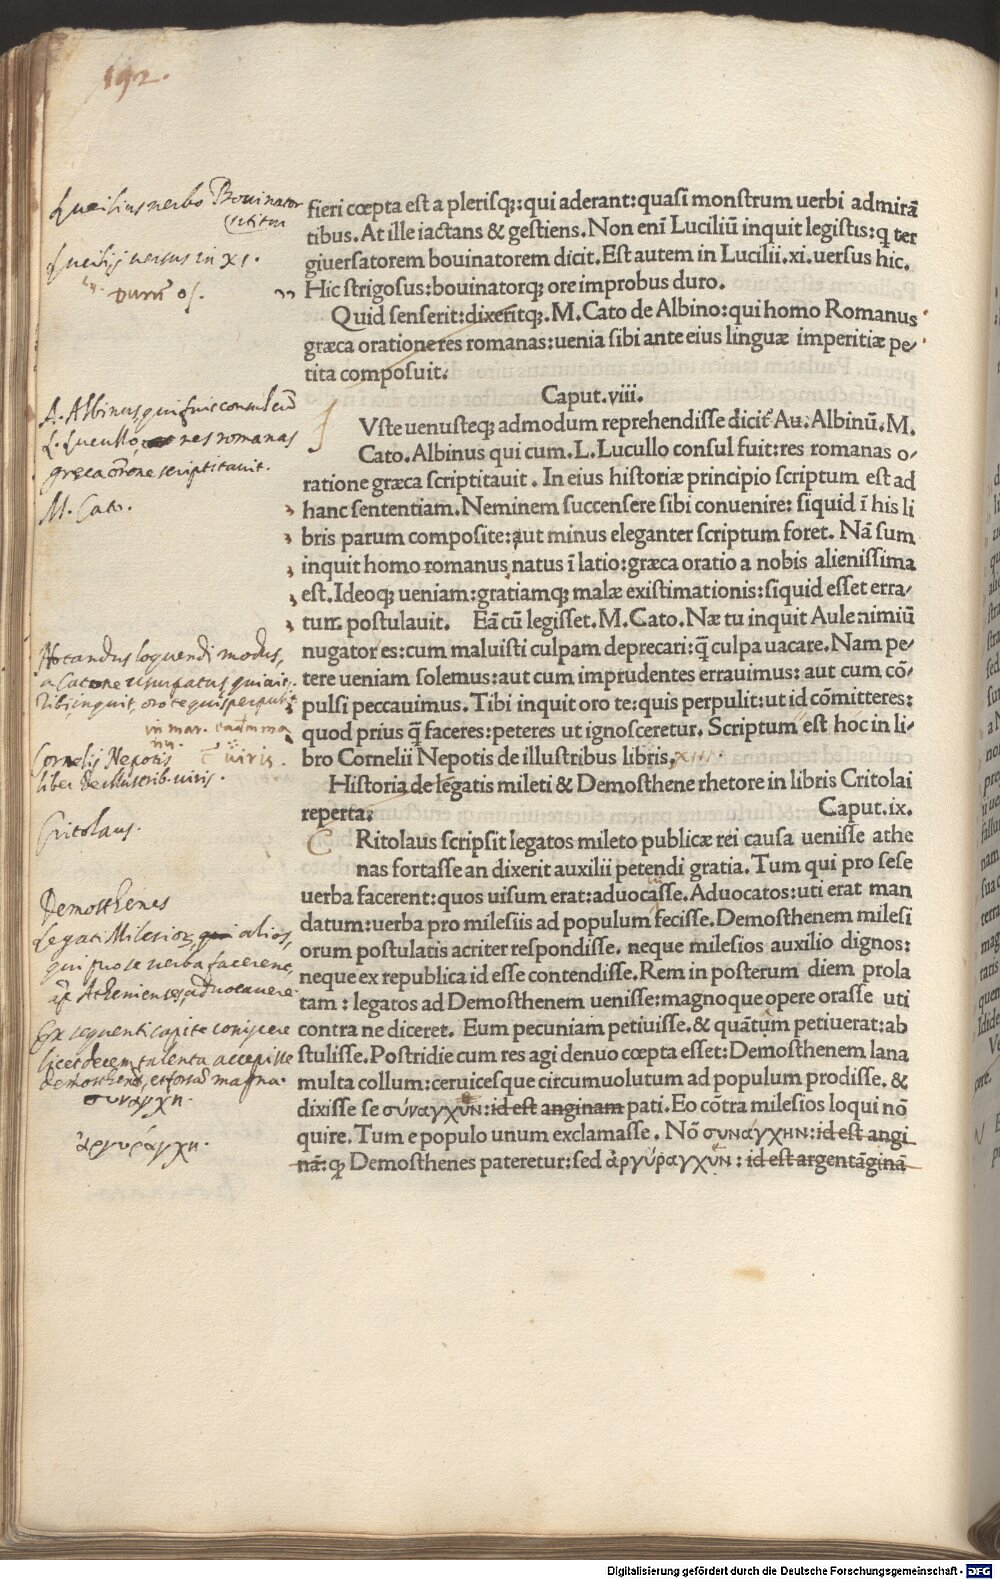 192.
Lucilius verbo Bovinator
Lucilij versus in XI.
Durū os.
fieri cœpta est a plerisqꝫ:qui aderant:quasi monstrum uerbi admirā
tibus. At ille iactans & gestiens. Non enī Luciliū inquit legistis:q ter
giuersatorem bouinatorem dicit. Est autem in Lucilii.xi.uersus hic.
Hic strigosus:bouinatorqꝫ ore improbus duro.
Quid senserit:dixeritqꝫ.M.Cato de Albino:qui homo Romanus
græca oratione res romanas:uenia sibi ante eius linguæ imperitiæ pe/
tita composuit.
Caput.viii.
A. Albinus qui fuit consul cū
L. Lucullo, res romanas
græca orōne scriptitavit.
M. Cato.
Vste uenusteqꝫ admodum reprehendisse dicit̃ Au. Albinū. M.
Cato. Albinus qui cum. L. Lucullo consul fuit:res romanas o/
ratione græca scriptitauit. In eius historiæ principio scriptum est ad
hanc sententiam. Neminem succensere sibi conuenire: siquid ī his li
bris parum composite:aut minus eleganter scriptum foret. Nā sum
inquit homo romanus natus ī latio:græca oratio a nobis alienissima
est. Ideoqꝫ ueniam:gratiamqꝫ malæ existimationis:siquid esset erra/
tum postulauit. Eā cū legisset. M. Cato. Næ tu inquit Aule nimiū
nugator es:cum maluisti culpam deprecari:q̃ culpa uacare. Nam pe/
tere ueniam solemus:aut cum imprudentes errauimus: aut cum cō/
pulsi peccauimus. Tibi inquit oro te: quis perpulit:ut id cōmitteres:
quod prius q̃ faceres:peteres ut ignosceretur. Scriptum est hoc in li/
bro Cornelii Nepotis de illustribus libris. XIII.
Notandus loquendi modus,
a Catone usurpatus, qui ait,
Tibi, inquit, oro te quis perpulit
in mar.
viris.
Cornelij Nepotis
liber de illustrib. viris.
Historia de legatis mileti & Demosthene rhetore in libris Critolai
reperta.
Caput.ix.
Critolaus.
C
Ritolaus scripsit legatos mileto publicæ rei causa uenisse athe
nas fortasse an dixerit auxilii petendi gratia. Tum qui pro sese
uerba facerent:quos uisum erat:aduocasse. Aduocatos:uti erat man
datum:uerba pro milesiis ad populum fecisse. Demosthenem milesi
orum postulatis acriter respondisse. neque milesios auxilio dignos:
neque ex republica id esse contendisse. Rem in posterum diem prola
tam : legatos ad Demosthenem uenisse:magnoque opere orasse uti
contra ne diceret. Eum pecuniam petiuisse.& quātum petiuerat:ab
stulisse. Postridie cum res agi denuo cœpta esset:Demosthenem lana
multa collum:ceruicesque circumuolutum ad populum prodisse. &
dixisse se σύναγχυν:id est anginam pati. Eo cōtra milesios loqui nō
quire. Tum e populo unum exclamasse. Nō συναγχην:id est angi
nā:qꝫ Demosthenes pateretur:sed ἀργύραγχυν : id est argentāginā
Demosthenes
Legati Milesior, alios,
qui pro se verba facerent,
Athenienses advocavere.
Ex sequenti capite coniicere
licet decem talenta accepisse
Demosthenē,
συναγχη.
ἀργυράγχη.
Digitalisierung gefördert durch die Deutsche Forschungsgemeinschaft - DFG